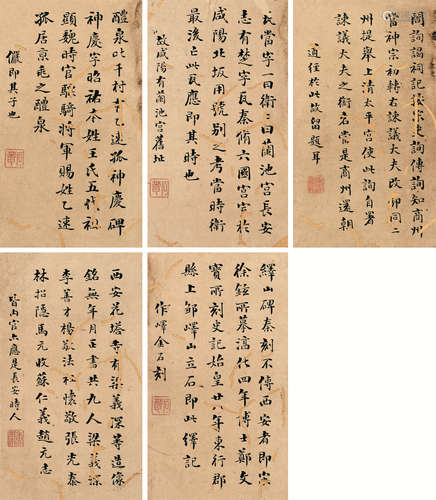 閻詢謁祠記攷宋史詢傳詢知商州
當神宗初轉右諫議大夫改邠同二
州提舉上清太平宮使此詢自署
諫議大夫之銜名當是商州還朝
道經於此故留題耳
瓦當字一曰衛一曰蘭池宮長安
志有楚字瓦秦脩六國宮室於
咸陽北坂用號別之考當時衛
最後亡此瓦應即其時也
故咸陽有蘭池宮舊址
醴泉北千村有乙速孤神慶碑
神慶字昭祐本姓王氏五代祖
顯魏時官驃騎將軍賜姓乙速
孤居京兆之醴泉
儼即其子也
繹山碑秦刻不傳西安者即宋
徐鉉所摹淳化四年博士鄭文
寶所刻史記始皇廿八年東行郡
縣上鄒嶧山立石即此繹記
作嶧金石刻
西安花塔寺有梁義深等造像
銘無年月正書共九人梁義深
李善才楊敬法杜懷敬張元泰
林招隱馬元收蘇仁義趙元志
皆內官應是長安時人